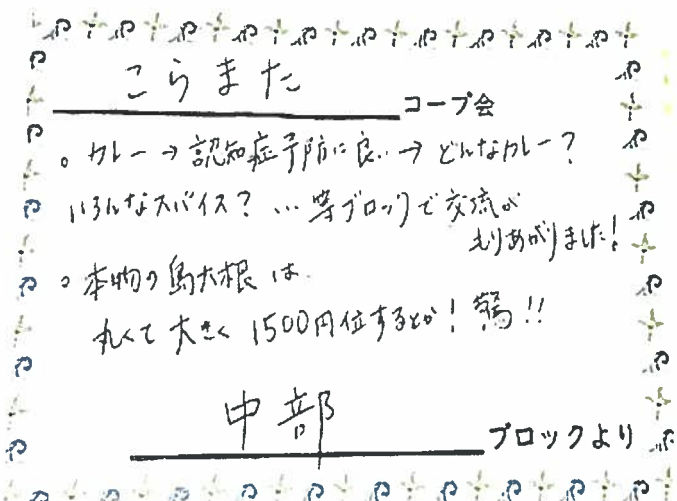 こらまた コープ会
。カレー→認知症予防に良い→どんなカレー?
いろんなスパイス?…等ブロックで交流が
もりあがりました!
。本物の島大根は
丸くて大きく1500円位するとか!驚!!
中部 ブロックより